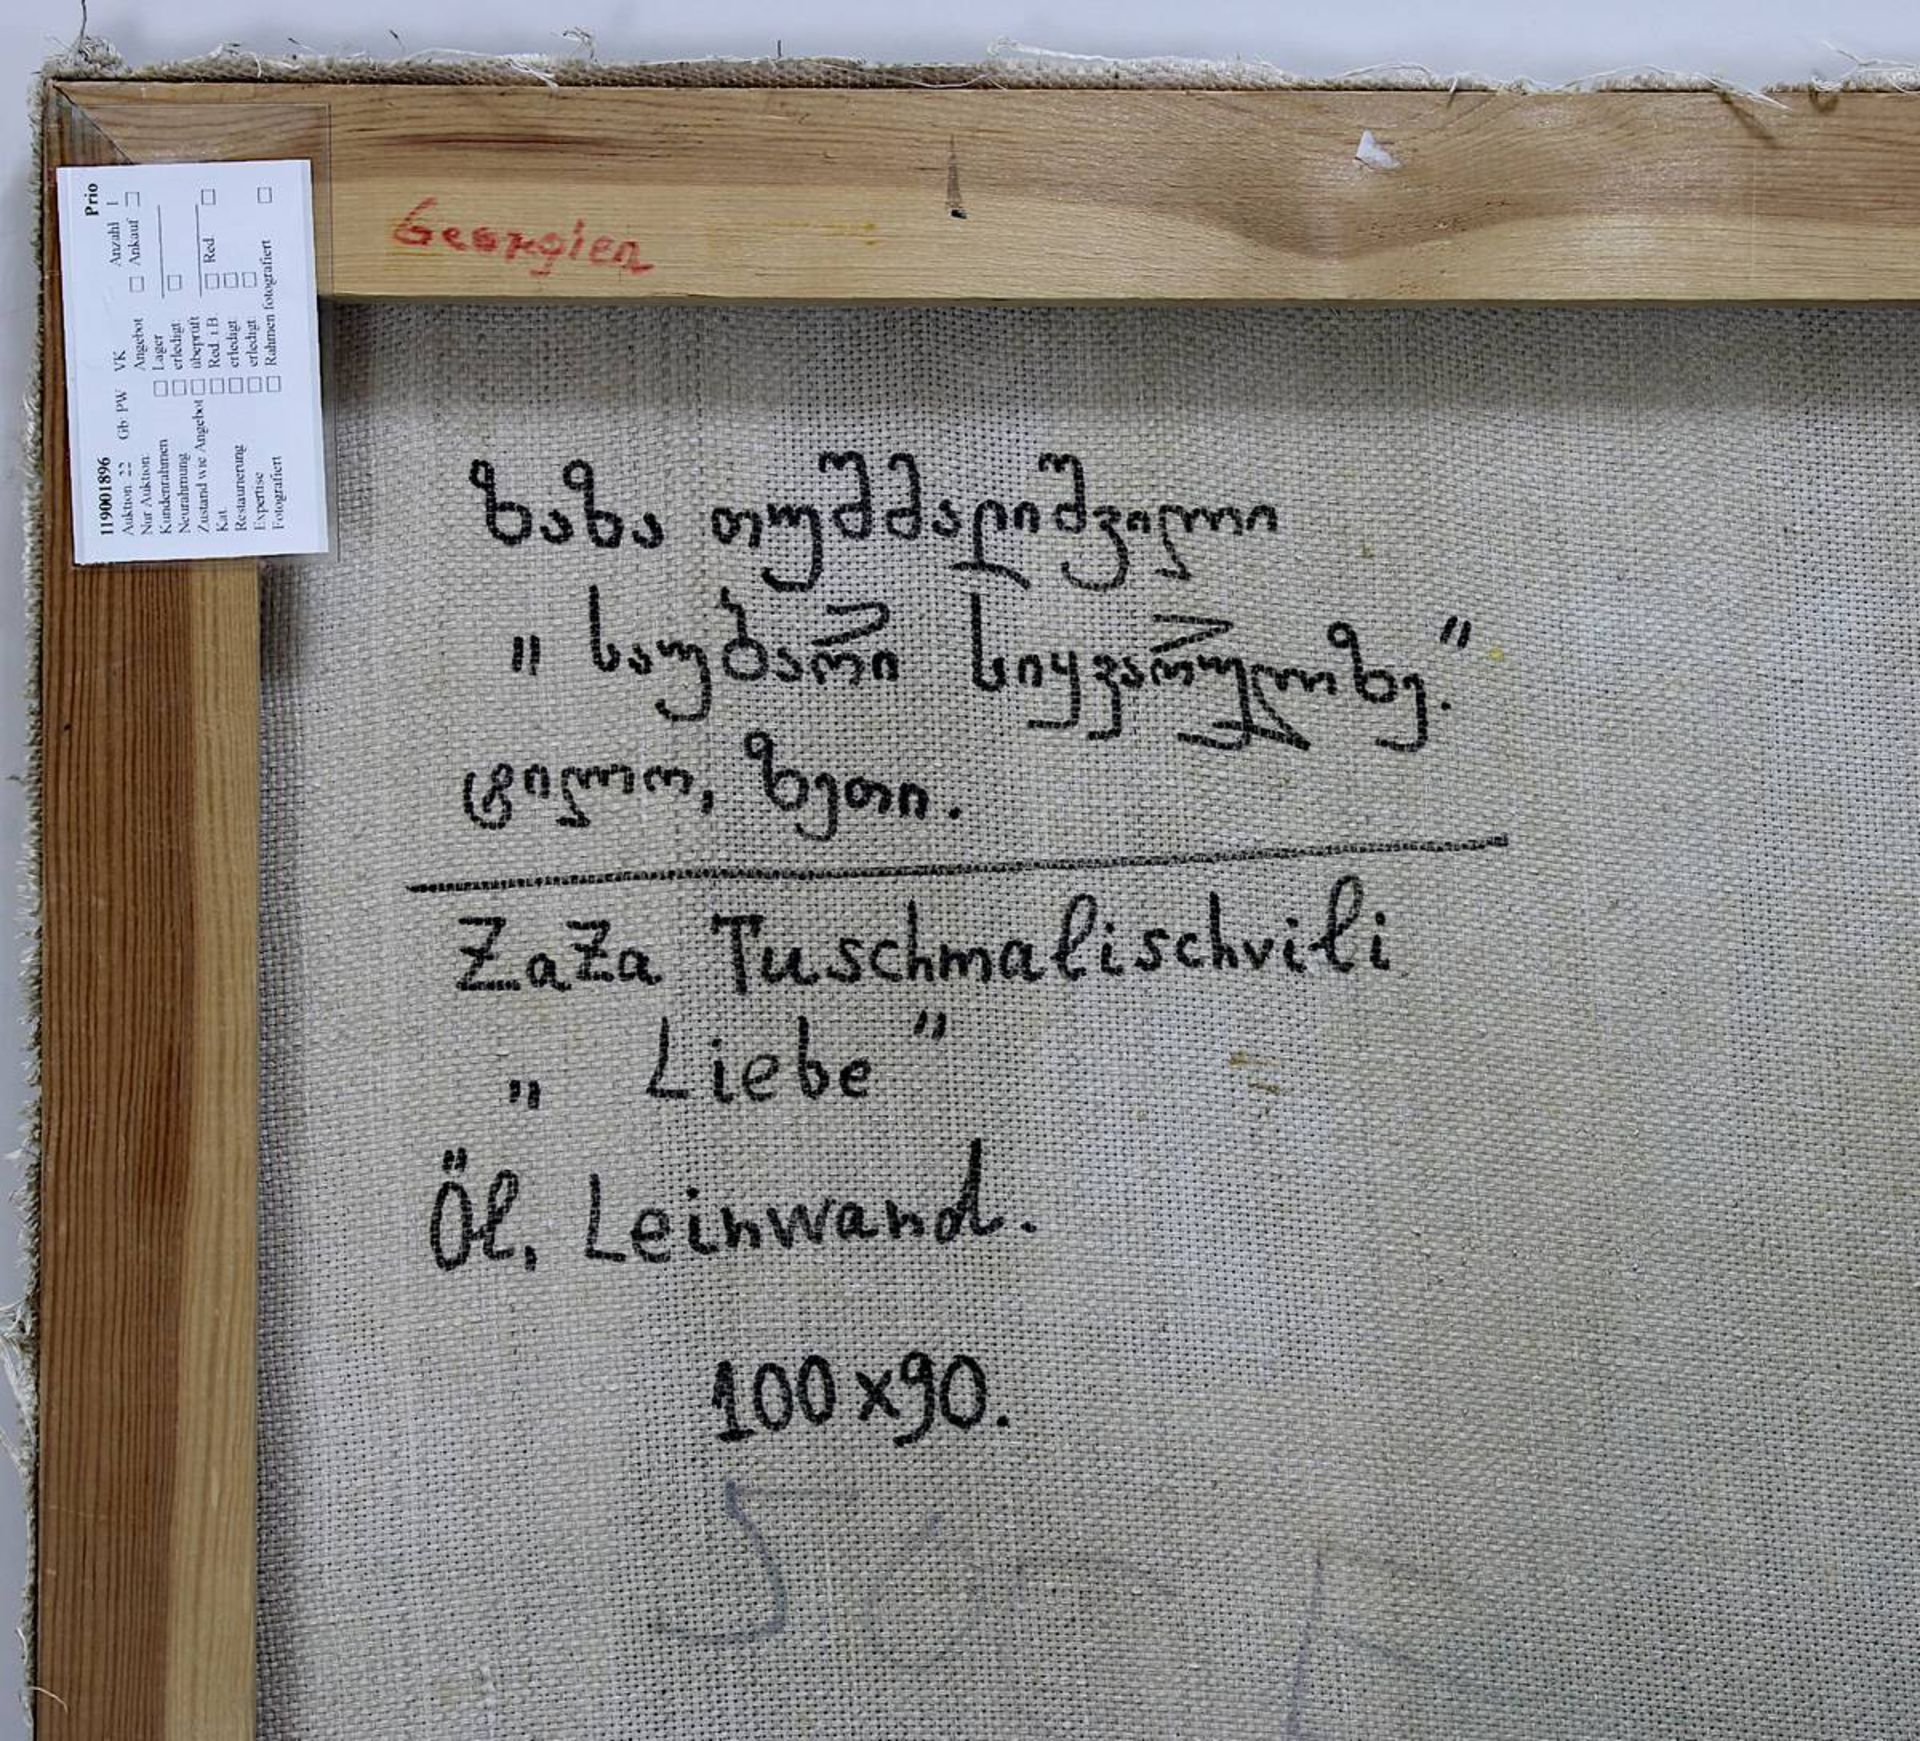 119001896 Prio
Auktion: 22 Gb: PW VK Anzahl 1
Nur Auktion: Angebot □ Ankauf □
Kundenrahmen □ Lager
Neurahmung □ erledigt: □
Zustand wie Angebot □ überprüft
Kat. □ Red. i.B. □ Red □
Restaurierung □ erledigt: □
Expertise □ erledigt: □
Fotografiert □ Rahmen fotografiert □
Georgien
ზაზა თუშმალიშვილი
„საუბარი სიყვარულზე."
ტილო, ზეთი.
ZaZa Tuschmalischvili
„Liebe"
Öl, Leinwand.
100x90.